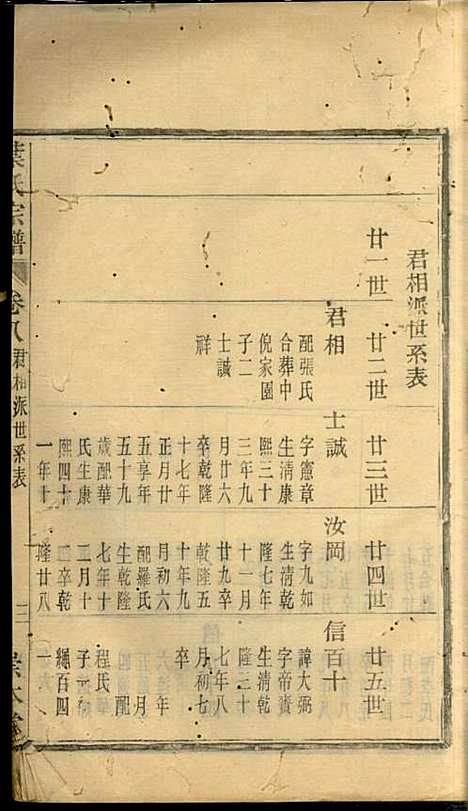 君相派世系表
廿一世
廿二世
廿三世
廿四世
廿五世
君相
配張氏
合葬中
倪家園
子二
士誠
祥
士誠
字憲章
生清康
熙三十
三年九
月廿六
卒乾隆
十七年
正月廿
五享年
五十九
歲配華
氏生康
熙四十
一年十
汝岡
字九如
生清乾
隆七年
十一月
廿九卒
乾隆五
十年九
月初六
配羅氏
生乾隆
七年十
二月十
四卒乾
隆廿八
信百十
諱大弼
字帝賚
生清乾
隆三十
七年八
月初七
卒
年
配
程氏
子一
繩百四
十六
葉氏宗譜
卷八
君相派世系表
三
崇本堂